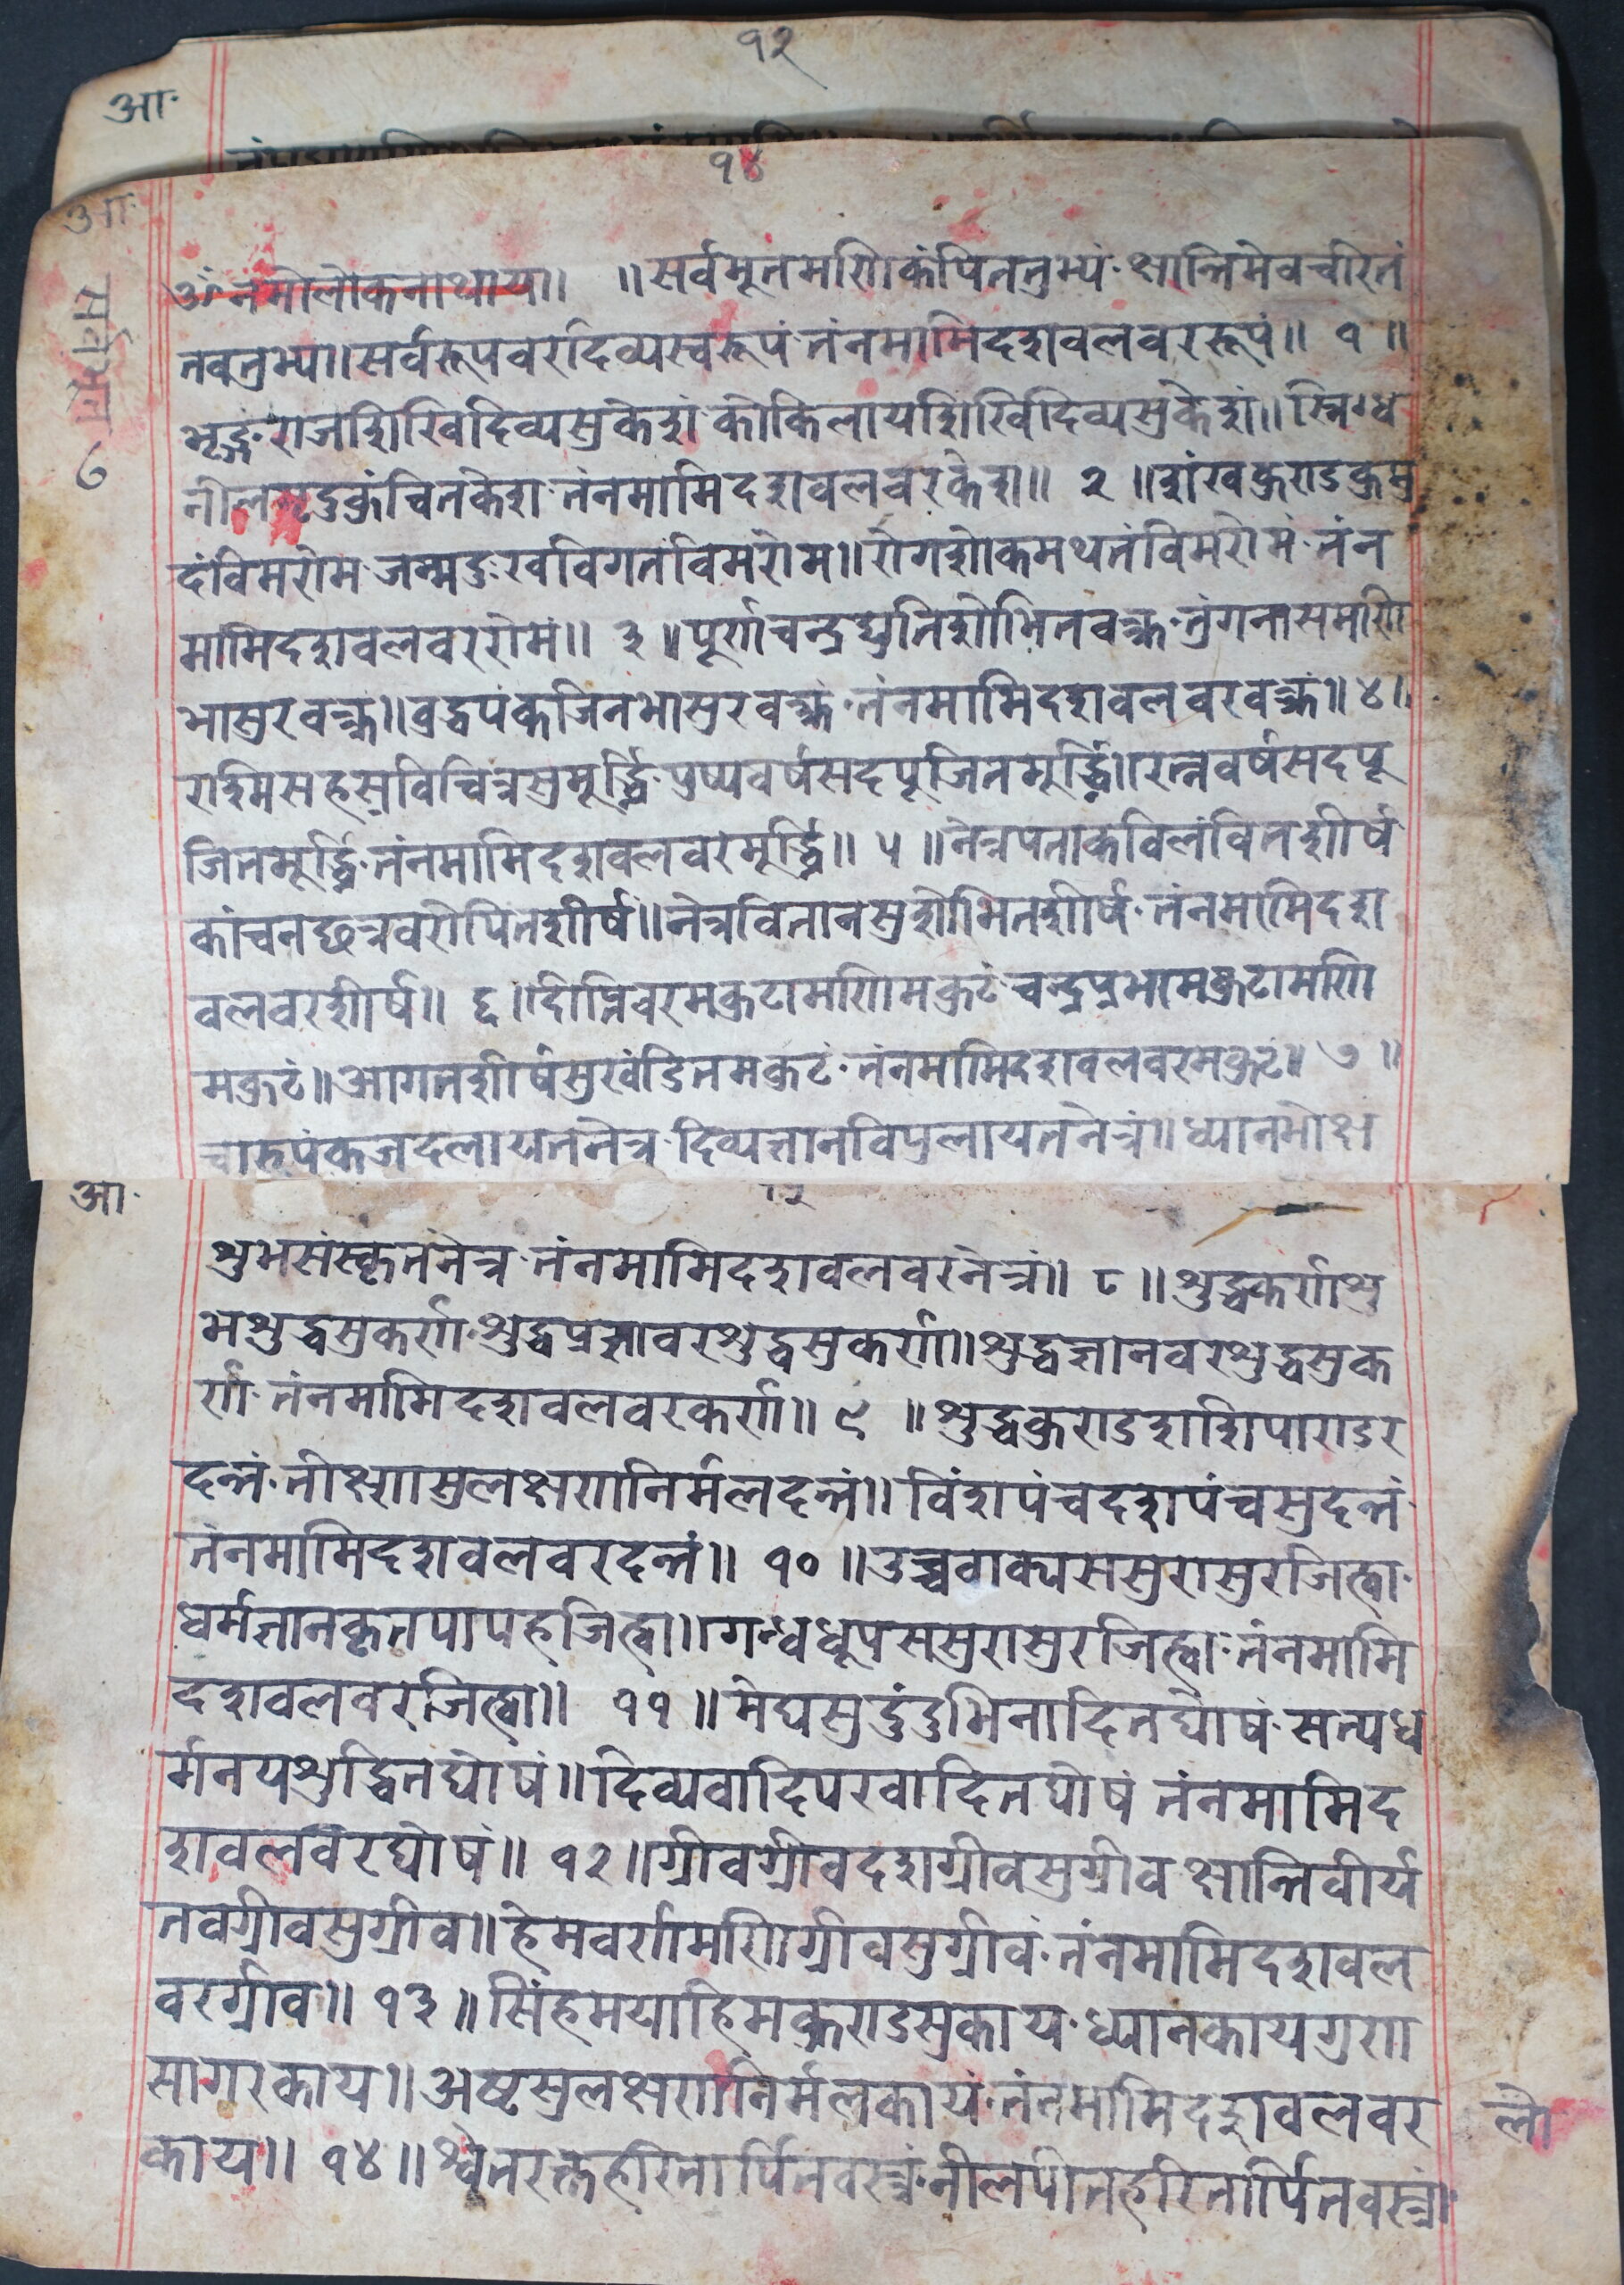 १२
आ॰
१४
आ॰
सर्वभूत ७
ॐ नमो लोकनाथाय॥ ॥सर्वभूतमणिकंपिततुभ्यं॰क्षान्तिमेवचरितं
तवतुभ्य॥सर्वरूपवरदिव्यस्वरूपं॰तंनमामिदशवलवररूपं॥ १ ॥
भृङ्गराजशिखिदिव्यसुकेशं॰कोकिलायशिखिदिव्यसुकेशं॥स्निग्ध
नीलमृदुकुंचितकेश॰तंनमामिदशवलवरकेश॥ २ ॥शंखकुण्डकुमु
दंविमरोम॰जन्मदुःखविगतंविमरोम॥रोगशोकमथतंविमरोमं॰तंन
मामिदशवलवररोमं॥ ३ ॥पूर्णचन्द्रद्युतिशोभितवक्त्र॰तुंगनासमणि
भासुरवक्त्र॥वुद्धपंकजिनभासुरवक्त्रं॰तंनमामिदशवलवरवक्त्रं॥४॥
रश्मिसहस्रविचित्रसुमूर्द्ध्नि॰पुष्पवर्षसदपूजितमूर्द्ध्नि॥रत्नवर्षसदपू
जितमूर्द्ध्नि॰तंनमामिदशवलवरमूर्द्ध्नि॥ ५ ॥नेत्रपताकविलंवितशीर्ष
कांचनछत्रवरोपितशीर्ष॥नेत्रवितानसुशोभितशीर्ष॰तंनमामिदश
वलवरशीर्ष॥ ६ ॥दीप्तिवरमकुटामणिमकुटं॰चन्द्रप्रभामकुटामणि
मकुटं॥आगतशीर्षसुखंडितमकुटं॰तंनमामिदशवलवरमकुटं॥ ७ ॥
चारुपंकजदलायतनेत्र॰दिव्यज्ञानविपुलायतनेत्रं॥ध्यानमोक्ष
आ॰
शुभसंस्कृतनेत्र॰तंनमामिदशवलवरनेत्रं॥ ८ ॥शुद्धकर्णशु
भशुद्धसुकर्ण॰शुद्धप्रज्ञावरशुद्धसुकर्ण॥शुद्धज्ञानवरशुद्धसुक
र्ण॰तंनमामिदशवलवरकर्ण॥ ९ ॥शुद्धकुण्डशशिपाण्डर
दन्तं॰तीक्ष्णसुलक्षणनिर्मलदन्तं॥विंशपंचदशपंचसुदन्तं॰
तंनमामिदशवलवरदन्तं॥ १० ॥उच्चवाक्यससुरासुरजित्वा॰
धर्मज्ञानकृतपापहजित्वा॥गन्धधूपससुरासुरजित्वा॰तंनमामि
दशवलवरजित्वा॥ ११ ॥मेघसुदुंदुभिनादितघोषं॰सत्यध
र्मनयशुद्धितघोषं॥दिव्यवादिपरवादितघोषं तंनमामिद
शवलवरघोषं॥ १२॥ग्रीवग्रीवदशग्रीवसुग्रीव क्षान्तिवीर्य
तवग्रीवसुग्रीव॥हेमवर्णमणिग्रीवसुग्रीवं॰तंनमामिदशवल
वरग्रीव॥ १३ ॥सिंहमयाहिमकुण्डसुकाय॰ध्यानकायगुण
सागरकाय॥अष्टसुलक्षणनिर्मलकायं॰तंनमामिदशवलवर
लो
काय॥ १४ ॥श्वेतरक्तहरितार्पितवस्त्रं॰नीलपीतहरितार्पितवस्त्रं॰